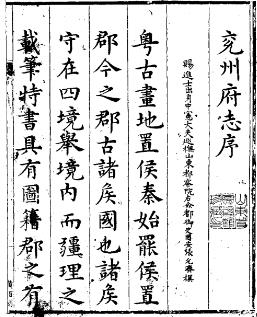 兖州府志序
賜進士出身中憲大夫巡撫山東都察院右僉都御史固安張允濟撰
粤古畫地置侯秦始罷侯置
郡今之郡古諸矦國也諸矦
守在四境舉境内而疆理之
載筆特書具有圖籍郡家有